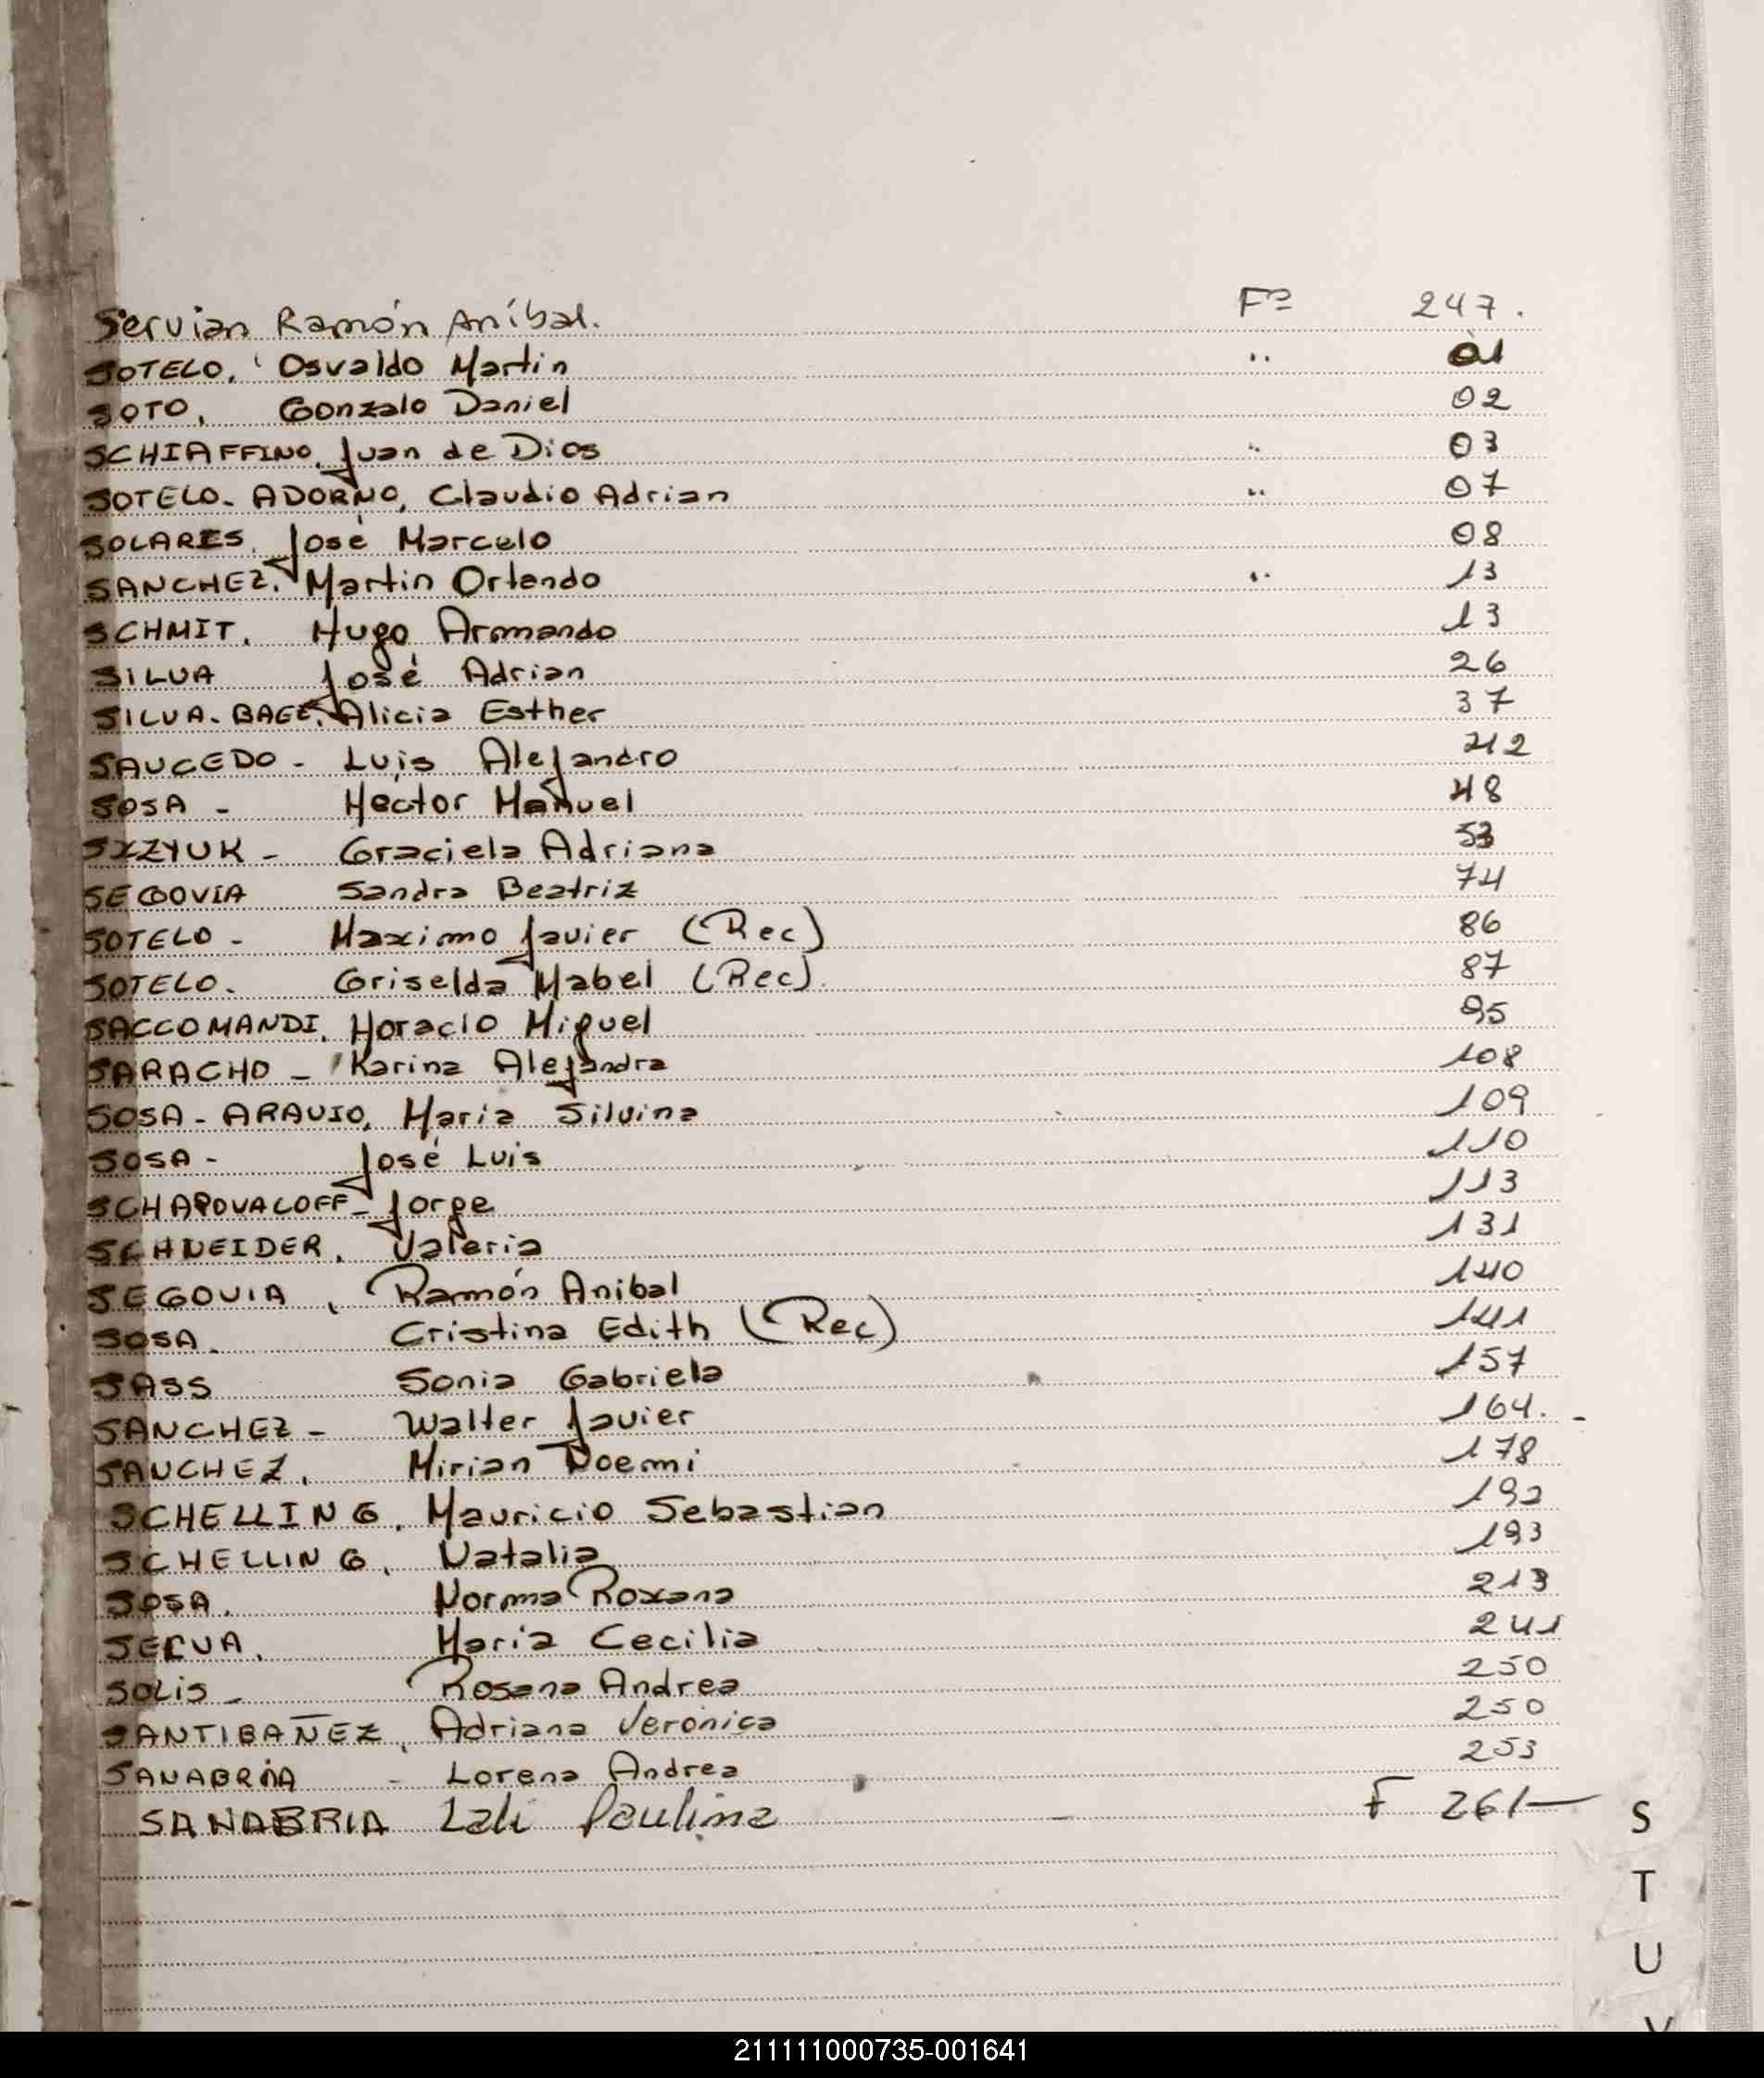 Servian Ramón Aníbal. Fº 247.
SOTELO, Osvaldo Martin " 01
SOTO, Gonzalo Daniel 02
SCHIAFFINO, Juan de Dios " 03
SOTELO-ADORNO, Claudio Adrian " 07
SOLARES, José Marcelo 08
SANCHEZ, Martin Orlando " 13
SCHMIT, Hugo Armando 13
SILVA José Adrian 26
SILVA-BAEZ, Alicia Esther 37
SAUCEDO - Luis Alejandro 42
SOSA - Hector Manuel 48
Graciela Adriana 53
SEGOVIA Sandra Beatriz 74
SOTELO - Maximo Javier (Rec) 86
SOTELO. Griselda Mabel (Rec). 87
SACCOMANDI, Horacio Miguel 95
SARACHO - Karina Alejandra 108
SOSA-ARAUJO, Maria Silvina 109
SOSA - José Luis 110
SCHAPOVALOFF - Jorge 113
SCHNEIDER, Valeria 131
SEGOVIA, Ramón Anibal 140
SOSA. Cristina Edith (Rec) 141
SASS Sonia Gabriela 157
SANCHEZ - Walter Javier 164.
SANCHEZ, Mirian Noemi 178
SCHELLING, Mauricio Sebastian 192
SCHELLING, Natalia 193
SOSA, Norma Roxana 213
María Cecilia 241
SOLIS - Rosana Andrea 250
SANTIBAÑEZ, Adriana Veronica 250
SANABRIA - Lorena Andrea 253
SANABRIA Lali Paulina F 261
S
T
U
V
211111000735-001641